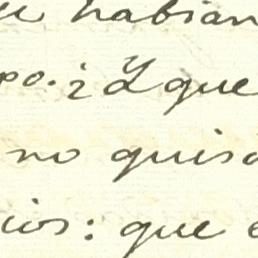 habian
po. ¿Y que
no quis
ios: que